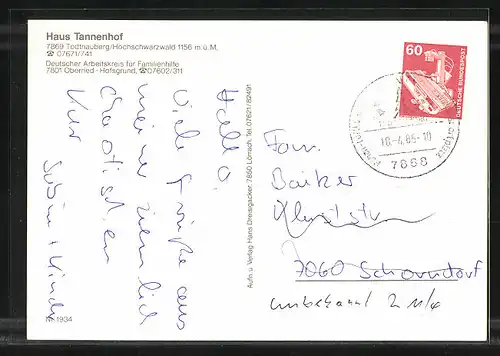 Haus Tannenhof
7869 Todtnauberg/Hochschwarzwald 1156 m ü. M.
☎ 07671/741
Deutscher Arbeitskreis für Familienhilfe
7801 Oberried - Hofsgrund, ☎07602/311
Hallo,
viele Grüße aus
meiner ziemlich
chaotischen
Kur
Sabine + Kinder
Nr. 1934
Aufn. u. Verlag Hans Dressgacker, 7850 Lörrach, Tel. 07621/82491
60
DEUTSCHE BUNDESPOST
18.-4.85-10
7868
Fam.
7060 Schorndorf
unbekannt